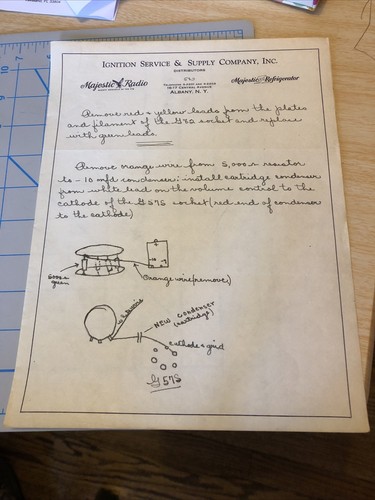 IGNITION SERVICE & SUPPLY COMPANY, INC.
DISTRIBUTORS
Majestic Radio
Majestic Refrigerator
15-17 CENTRAL AVENUE
ALBANY, N. Y.
Remove red & yellow leads from the plates
and filament of the G82 socket and replace
with green leads.
Remove orange wire from 5,000 Ω resistor
to - 10 mfd condenser: install cartridge condenser
from white lead on the volume control to the
cathode of the G57S socket (red end of condensor
to the cathode)
5000Ω
green
Orange wire (remove)
white wire
NEW condenser
(cartridge)
cathode & grid
G57S